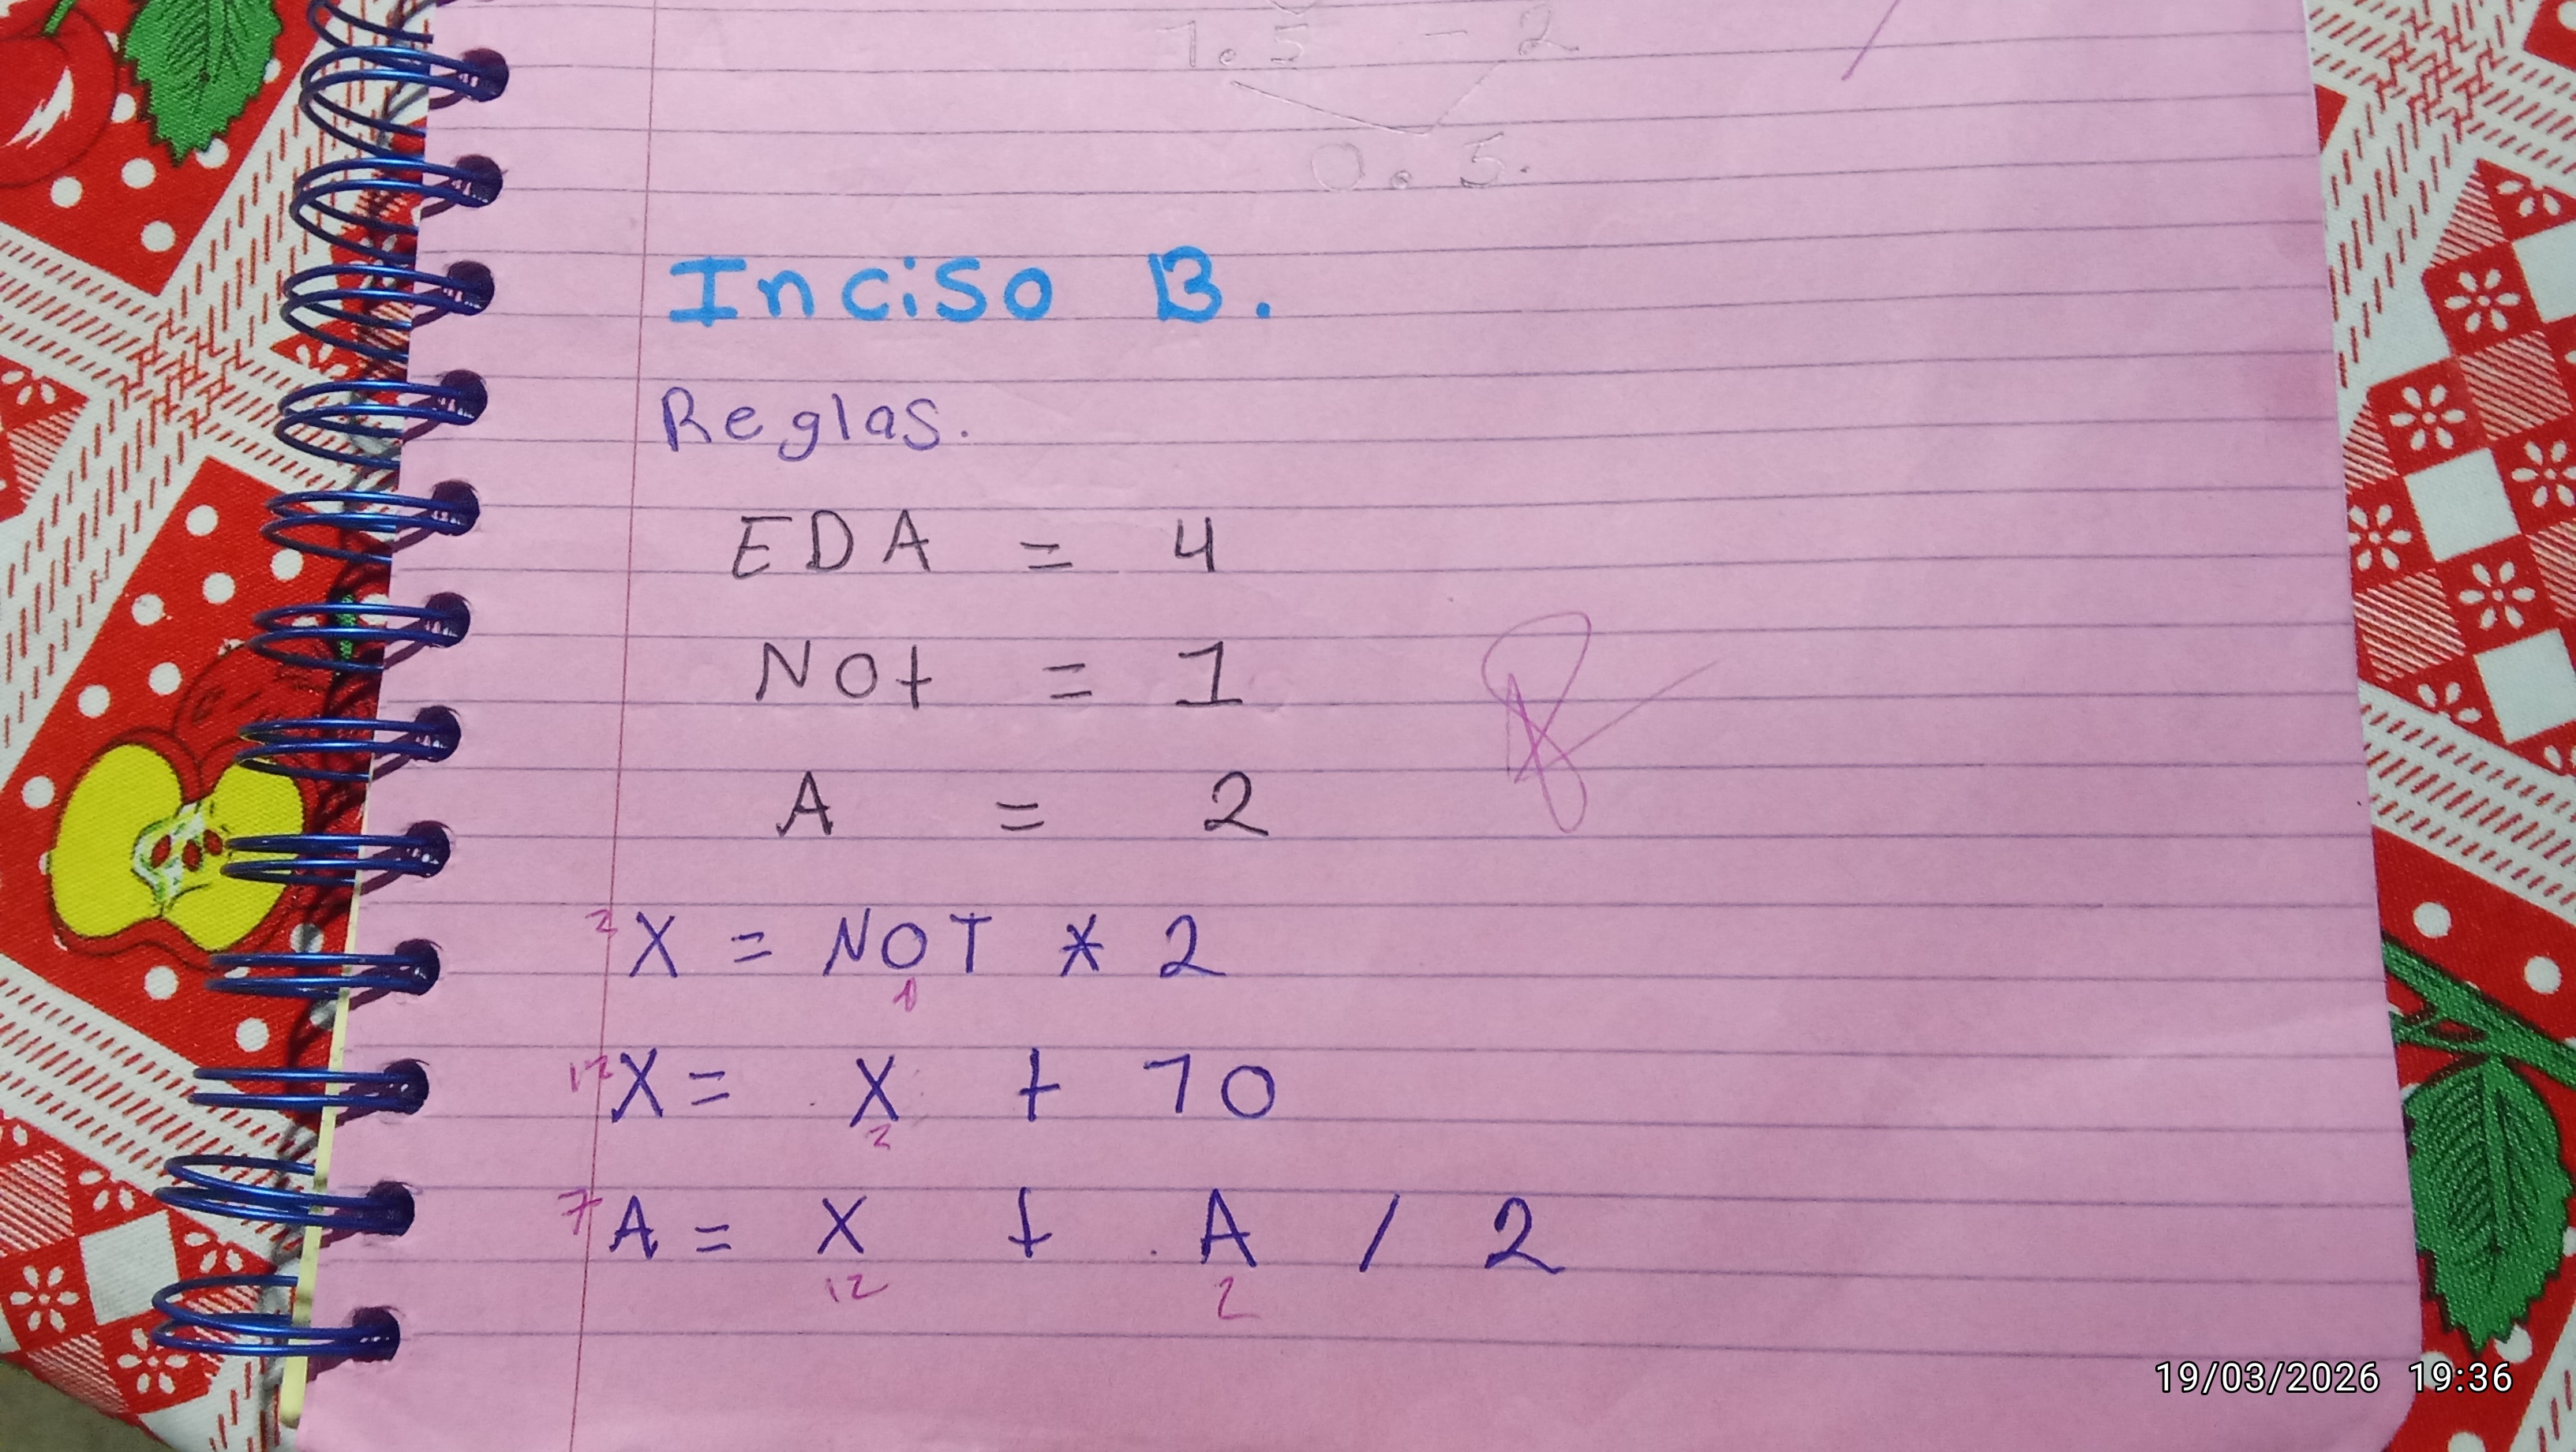 1.5 - 2
0.5.
Inciso B.
Reglas.
EDA = 4
Not = 1
A = 2
2 X = NOT * 2
1
12 X = X + 10
2
7 A = X + A / 2
12 2
19/03/2026 19:36